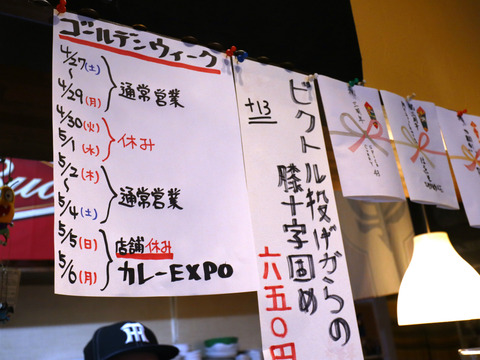 ゴールデンウィーク
4/27(土)
〜
4/29(月)
通常営業
4/30(火)
5/1(水)
休み
5/2(木)
〜
5/4(土)
通常営業
5/5(日)
5/6(月)
店舗休み
カレーEXPO
+13
ビクトル投げからの
膝十字固め
六五〇円